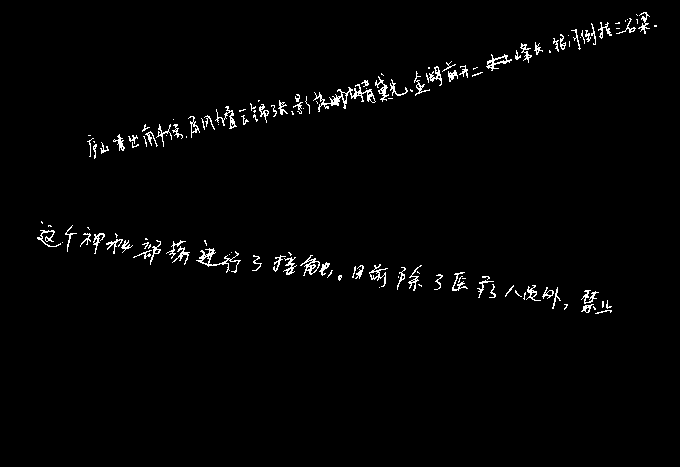 庐山秀出南斗傍,屏风九叠云锦张,影落明湖青黛光,金阙前开二峰长,银河倒挂三石梁.
这个神秘部落进行了接触。目前除了医疗人员外,禁止